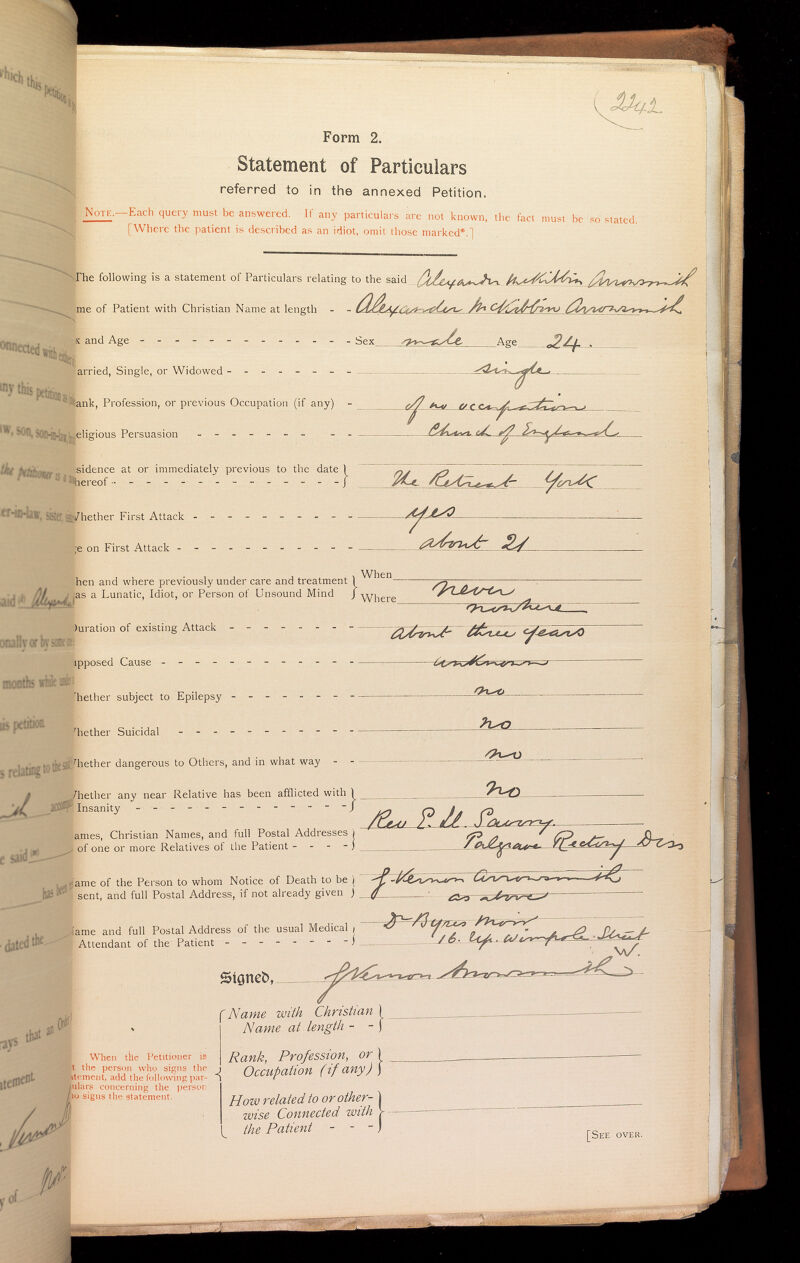 2242
Form 2.
Statement of Particulars
referred to in the annexed Petition.
NOTE.—Each query must be answered. If any particulars are not known, the fact must be so stated.
[Where the patient is described as an idiot, omit those marked*.]
The following is a statement of Particulars relating to the said Alexander McKibbin Arrowsmith
me of Patient with Christian Name at length - - Alexander McKibbin Arrowsmith
x and Age - - - - - - - - - - - - - Sex male Age 24.
arried, Single, or Widowed - - - - - - - single
ank, Profession, or previous Occupation (if any) - of no occupation
eligious Persuasion - - - - - - - - Church of England
sidence at or immediately previous to the date
hereof - - - - - - - - - - - - - - The Retreat York
Whether First Attack - - - - - - - - - - yes
ge on First Attack - - - - - - - - - - - about 21
hen and where previously under care and treatment When
as a Lunatic, Idiot, or Person of Unsound Mind Where never
nowhere
Duration of existing Attack - - - - - - - - about three years
upposed Cause - - - - - - - - - - - - unknown
Whether subject to Epilepsy - - - - - - - no
Whether Suicidal - - - - - - - - - - no
Whether dangerous to Others, and in what way - - no
Whether any near Relative has been afflicted with
Insanity - - - - - - - - - - - - - no
ames, Christian Names, and full Postal Addresses Rev E. Ll. Savory.
of one or more Relatives of the Patient - - - - Palgrave Rectory Diss
ame of the Person to whom Notice of Death to be J. Vernon Arrowsmith
sent, and full Postal Address, if not already given as above
ame and full Postal Address of the usual Medical Dr Byres Moir
Attendant of the Patient - - - - - - - - 16. Up. Wimpole Street
W.
Signed, J Vernon Arrowsmith
Name with Christian
Name at length - -
When the Petitioner is
t the person who signs the
tement, add the following par-
ulars concerning the person
o signs the statement.
Rank, Profession, or
Occupation (if any)
How related to or other-
wise Connected with
the Patient - - -
[SEE OVER.
which this petition is
onnected with either
any this petition is
w, son, son-in-law,
the petitioner is a
er-in-law, sister,
said Alexander
onally or by some
months while under
is petition.
s relating to the said
accomp
e said
has been
dated the
rays that an Order
tement.
Vernon
y of Nov